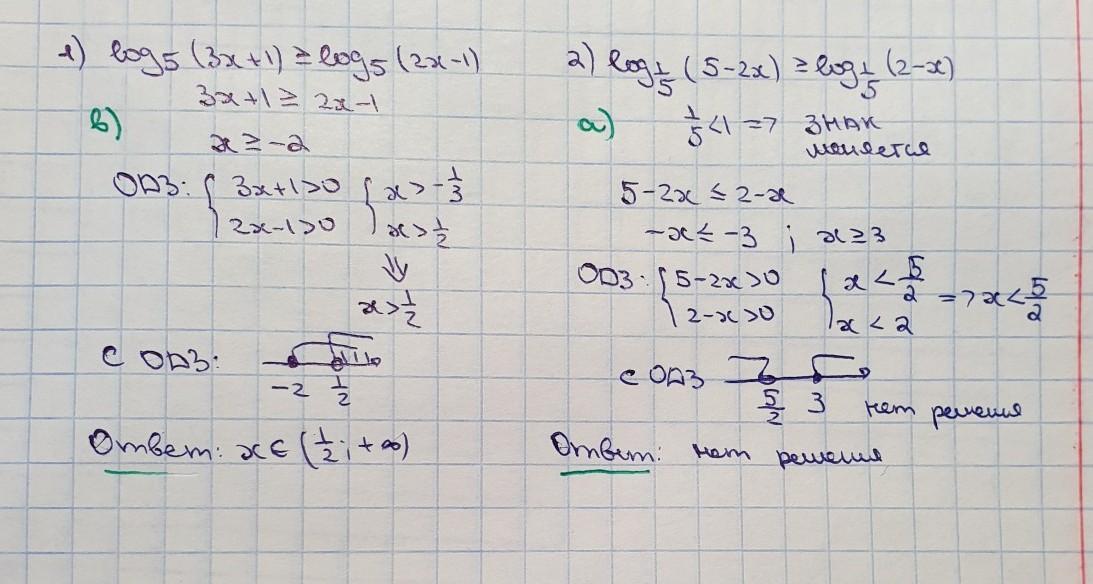 1) log₅(3x+1) ≥ log₅(2x-1)
3x+1 ≥ 2x-1
в)
x ≥ -2
ОДЗ: { 3x+1>0 { x > -1/3
2x-1>0 x > 1/2
⇓
x > 1/2
С ОДЗ:
-2 1/2
Ответ: x ∈ (1/2; +∞)
2) log_{1/5}(5-2x) ≥ log_{1/5}(2-x)
а) 1/5 < 1 => знак
меняется
5-2x ≤ 2-x
-x ≤ -3 ; x ≥ 3
ОДЗ: { 5-2x>0 { x < 5/2 => x < 5/2
2-x>0 x < 2
С ОДЗ
5/2 3 нет решения
Ответ: нет решения